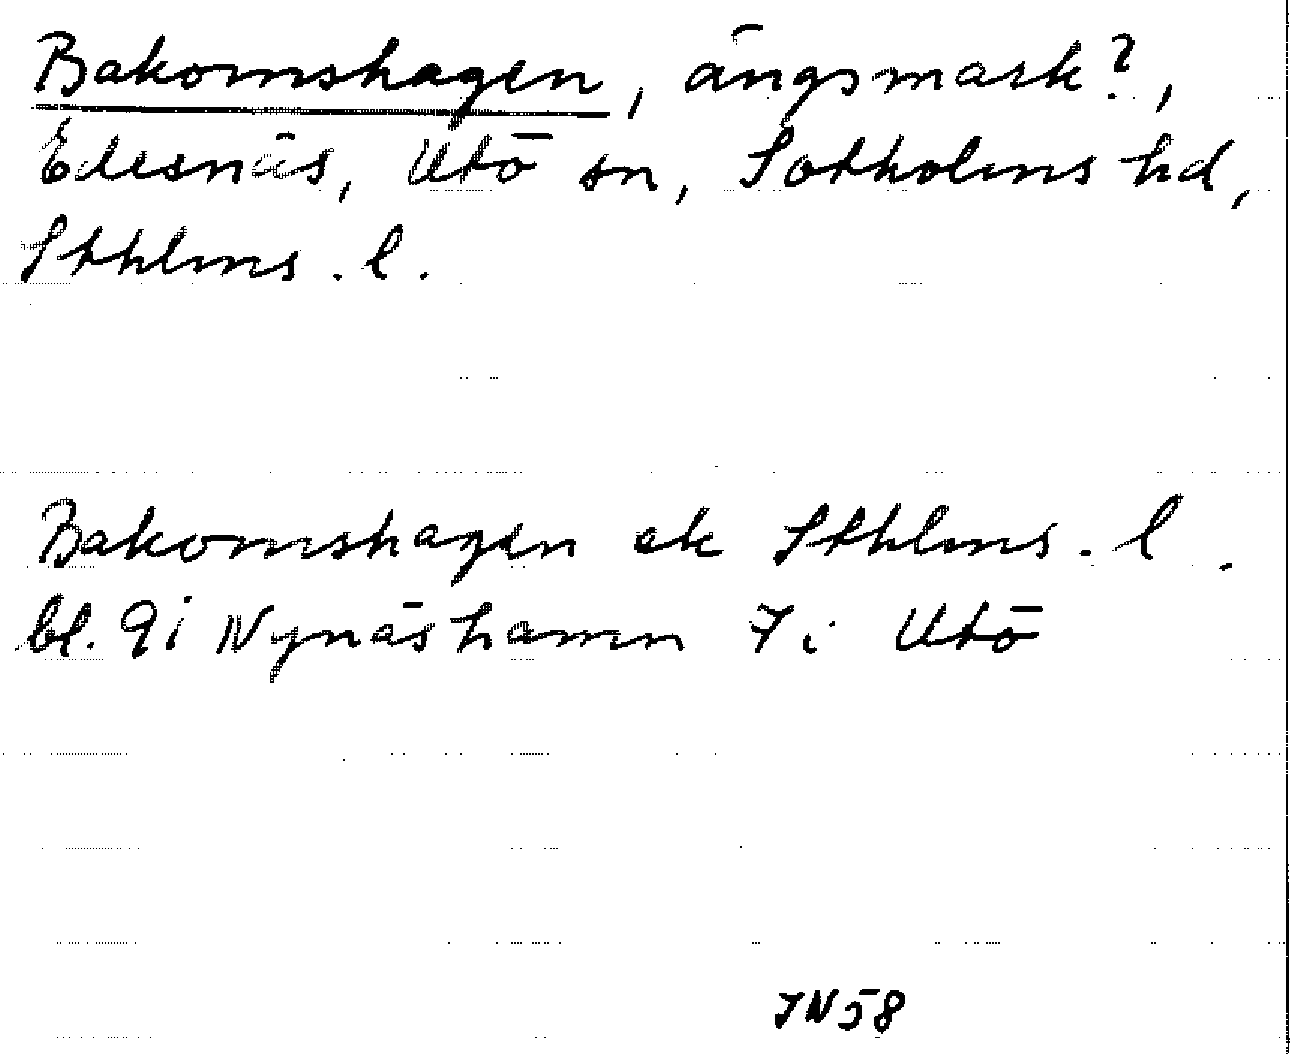 Bakomshagen, ängsmark?,
Edesnäs, Utö sn, Sotholms hd,
Sthlms. l.
Bakomshagen ek Sthlms. l.
bl. 9i Nynäshamn 7i Utö
JN58